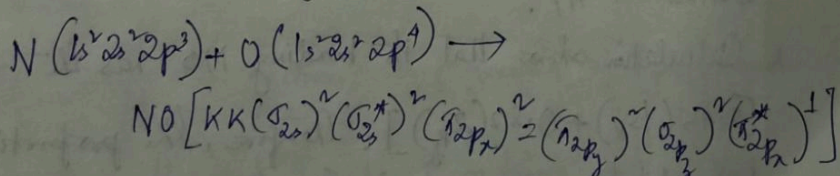 N (1s² 2s² 2p³) + O (1s² 2s² 2p⁴) ⟶
NO [KK(σ₂ₛ)² (σ*₂ₛ)² (π₂pₓ)² = (π₂p_y)² (σ₂p_z)² (π*₂pₓ)¹]